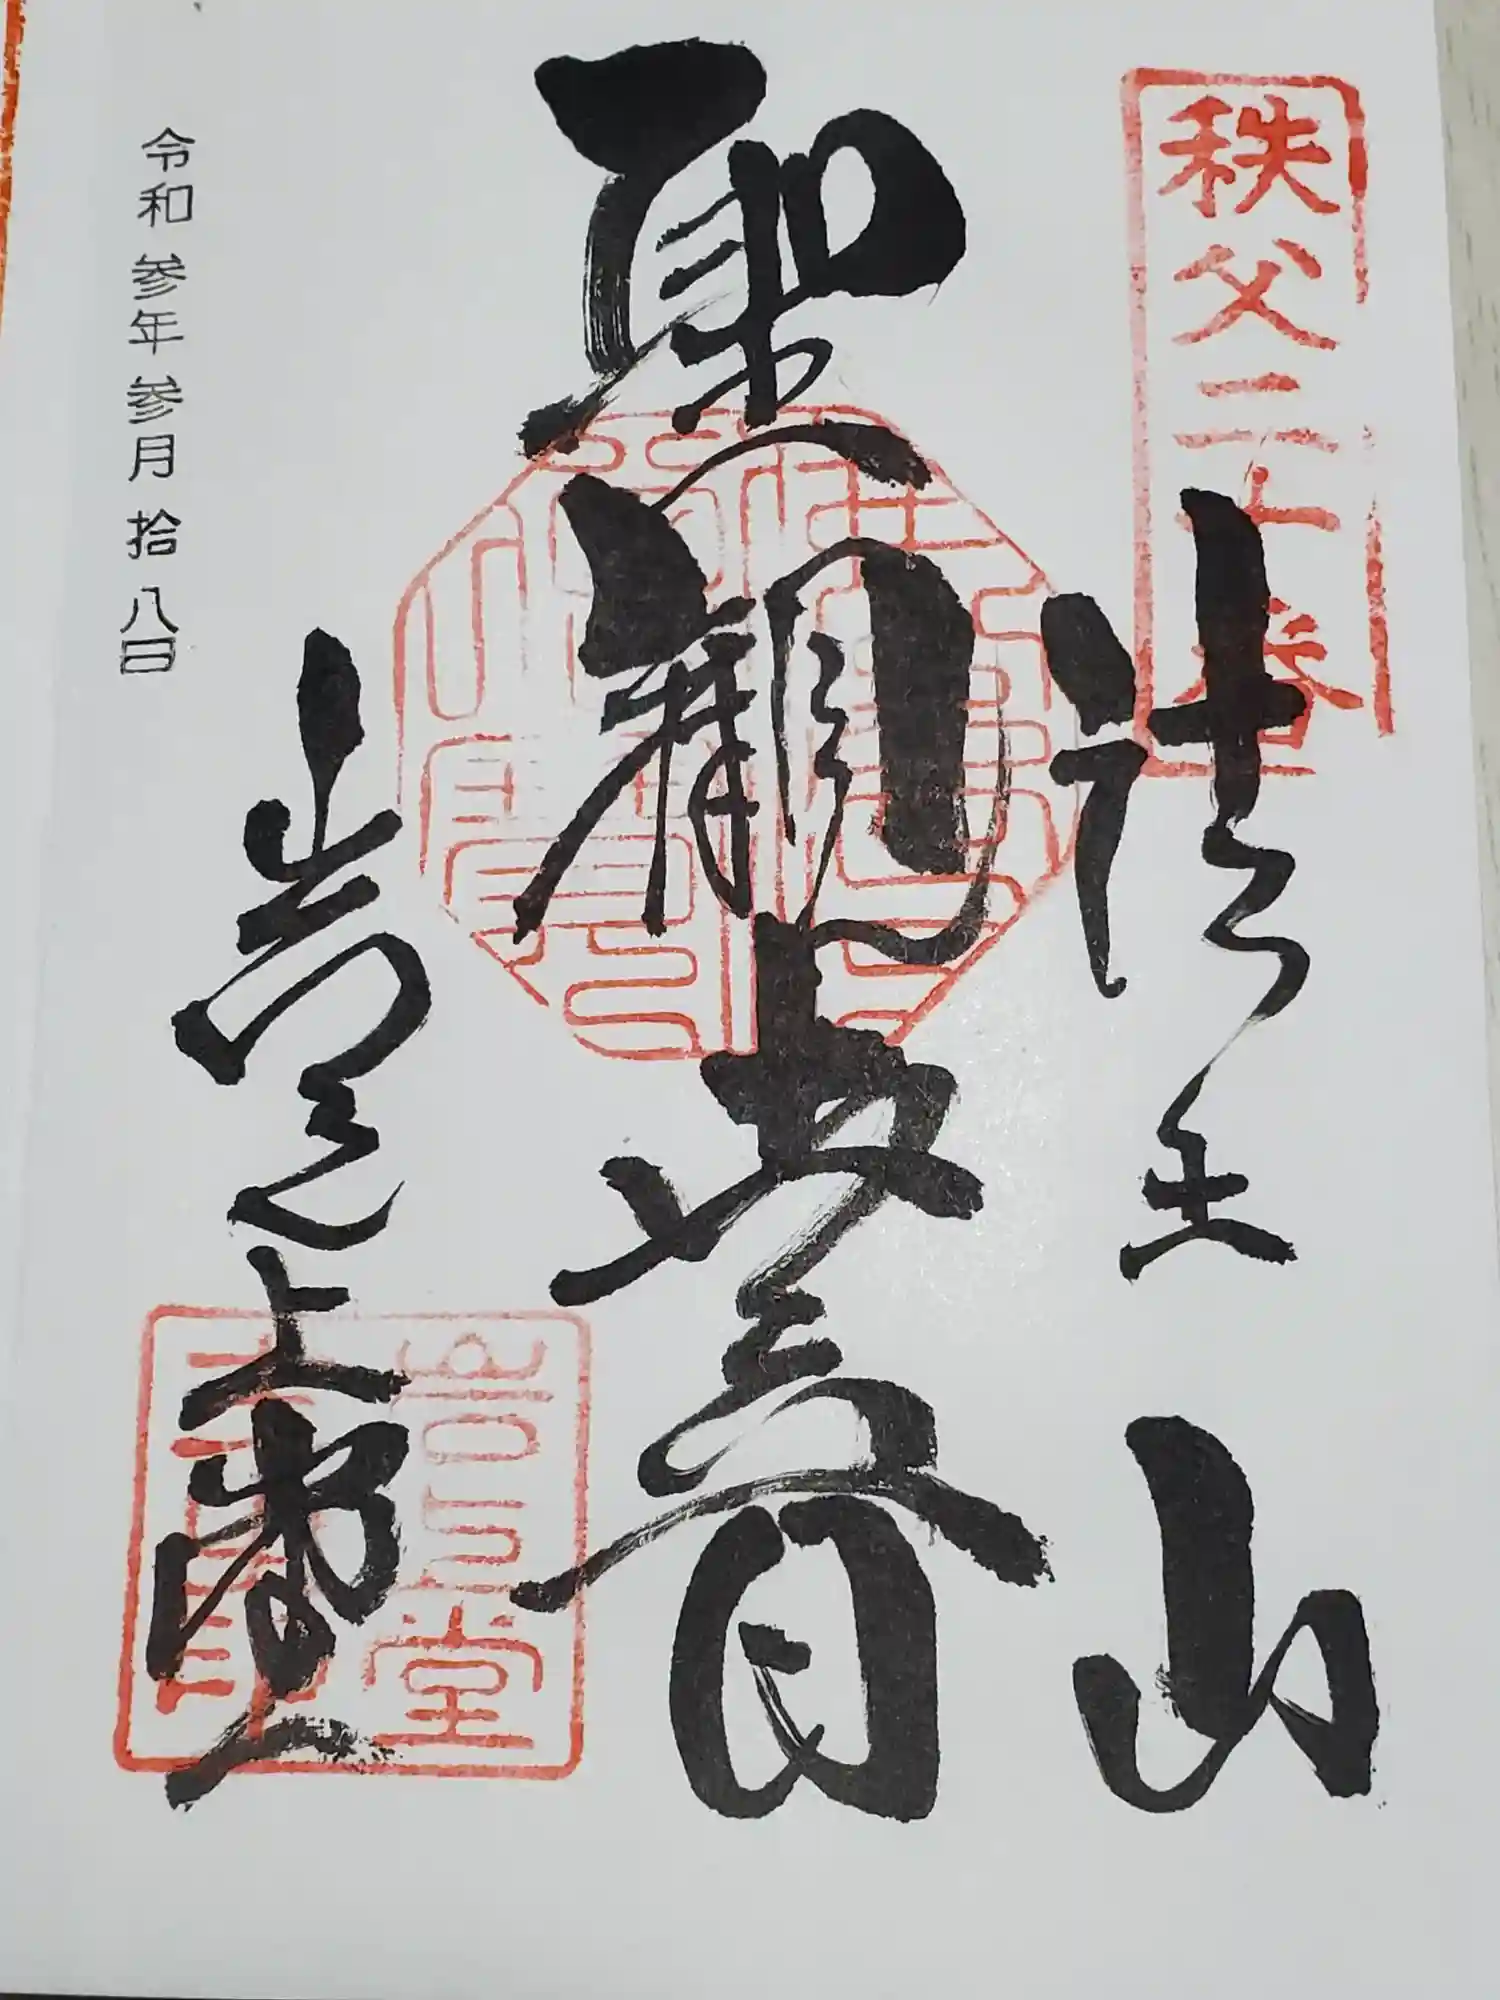 秩父二十番
法王山
聖観世音
岩之上堂
岩之上堂
令和参年参月拾八日